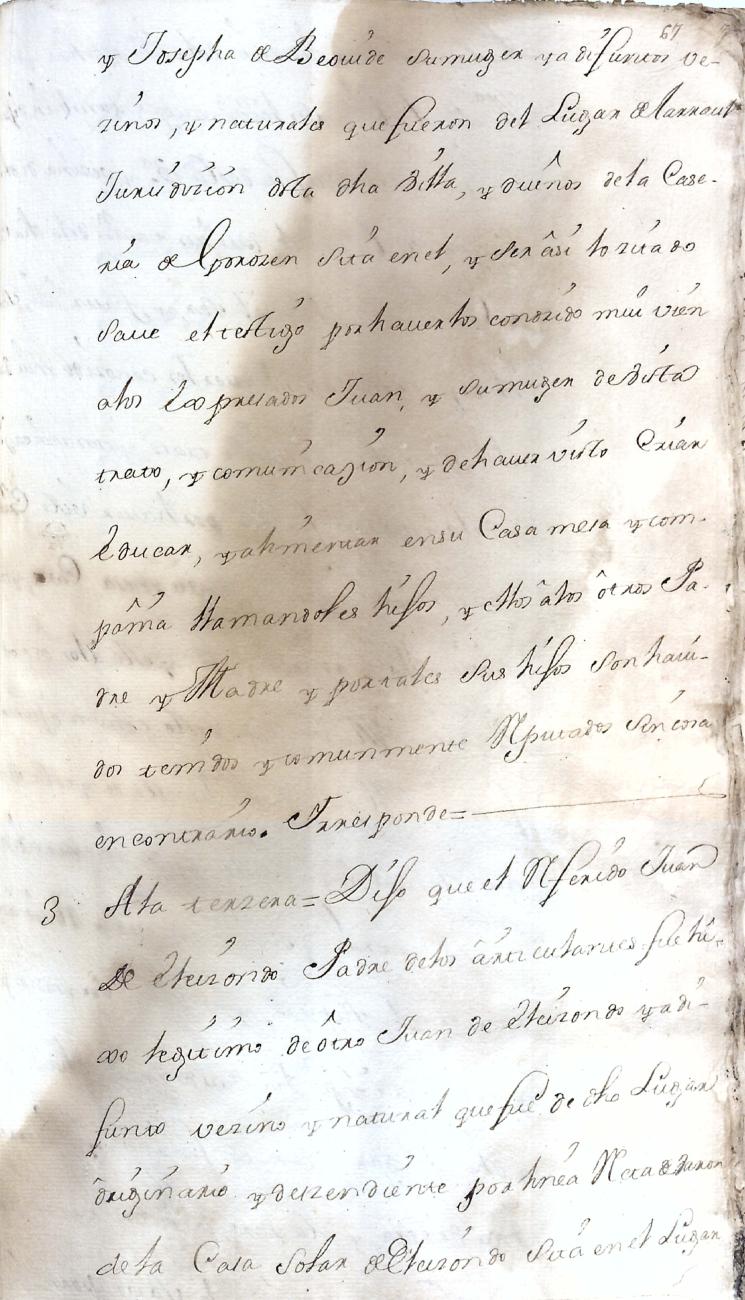 67
y Josepha de Beouide su muger ya difuntos ve-
zinos, y naturales que fueron del Lugar de
Jurisdizión desta dha Villa, y dueños dela Case-
ria de sita en el, y ser asi lo zitado
save el testigo por haverlos conozido mui vien
alos expresados Juan, y su muger de Vista
trato, y comunicazión, y de haver visto Criar
educar, y alimentar en su Casa mesa y com-
pañia llamandoles hijos, y ellos alos otros Pa-
dre y Madre y por tales sus hijos son havi-
dos tenidos y comunmente Reputados sin cosa
en contrario. Y responde=
3 Ala terzera= Dijo que el Referido Juan
de Eleizondo Padre delos articulantes fue hi-
xo legitimo de otro Juan de Eleizondo ya di-
funto vezino y natural que fue de dho Lugar
originario y dezendiente por linea Recta de Varon
dela Casa solar de Eleizondo sita en el Lugar